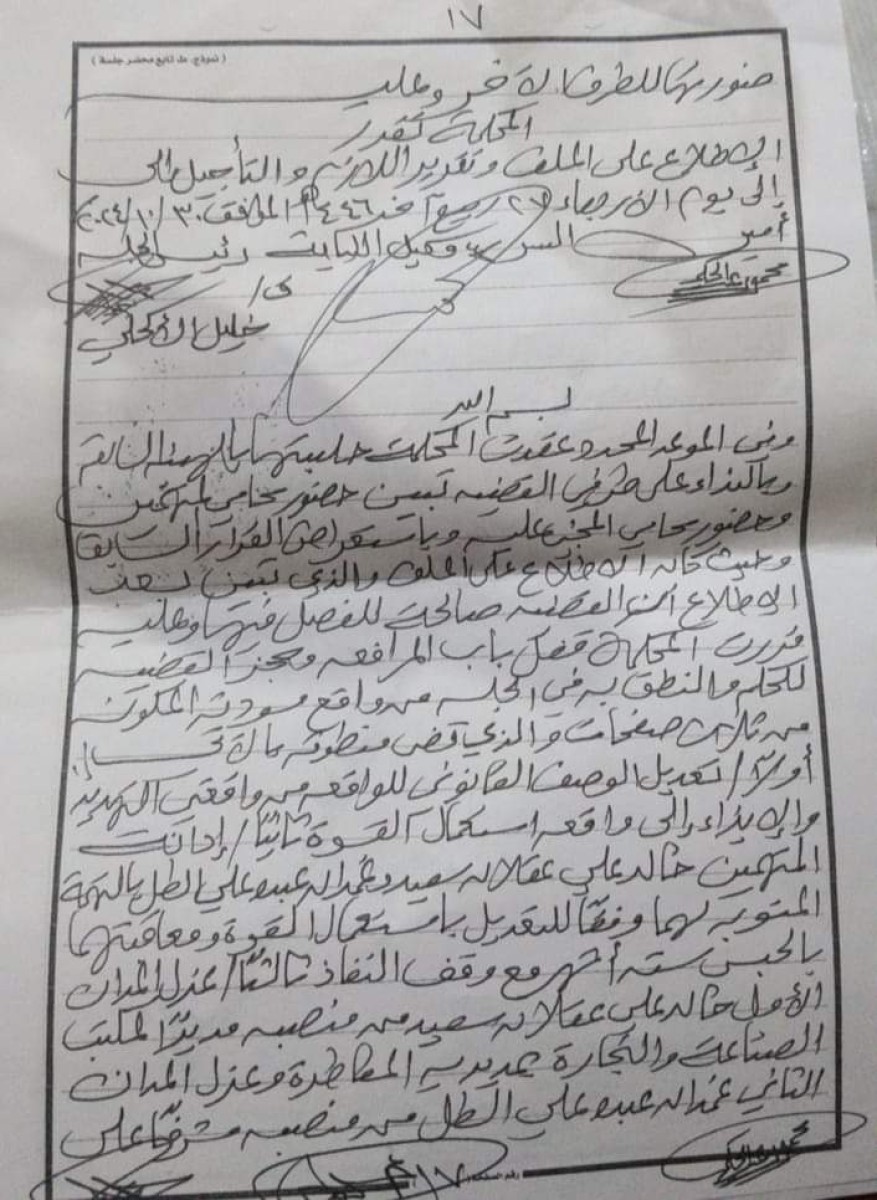 ١٧
( نموذج. مد تابع محضر جلسة )
صنور بها للطرف الآخر وعليه
المحكمة تقرر
الإطلاع على الملف وتقرير اللازم والتأجيل إلى
إلى يوم الأربعاء ٢٧ ربيع آخر ١٤٤٦هـ الموافق ٣٠/١٠/٢٠٢٤م
أمين السر وكيل النيابة رئيس الجلسة
محمود عبدالحكيم ق/
خليل الأكحلي
بسم الله
وفي الموعد المحدد عقدت المحكمة جلستها بالهيئة السابقة
وبالنداء على طرفي القضية تبين حضور محامي المتهمين
وحضور محامي المجني عليه وباستعراض القرار السابق
وحيث كان الاطلاع على الملف والذي تبين بعد
الاطلاع أن القضية صالحة للفصل فيها وعليه
قررت المحكمة قفل باب المرافعة وحجز القضية
للحكم والنطق به في الجلسة من واقع مسودته المكونة
من ثلاث صفحات والذي قضى منطوقه بما لآتي
أولاً/ تعديل الوصف القانوني للواقعة من واقعتي التهديد
والإيذاء إلى واقعة استعمال القوة ثانياً/ إدانت
المتهمين خالد علي عقلان سعيد وعبدالله عبده علي الطل بالتهمة
المنسوبة لهما وفقاً للتعديل باستعمال القوة ومعاقبتهما
بالحبس ستة أشهر مع وقف النفاذ ثالثاً/ عزل المدان
الأول خالد علي عقلان سعيد من منصبه مديراً لمكتب
الصناعة والتجارة بمديرية المظاهرة وعزل المدان
الثاني عبدالله عبده علي الطل من منصبه مشرفاً على
محمود عبدالحكيم رقم الصفحة ( ١٧ )